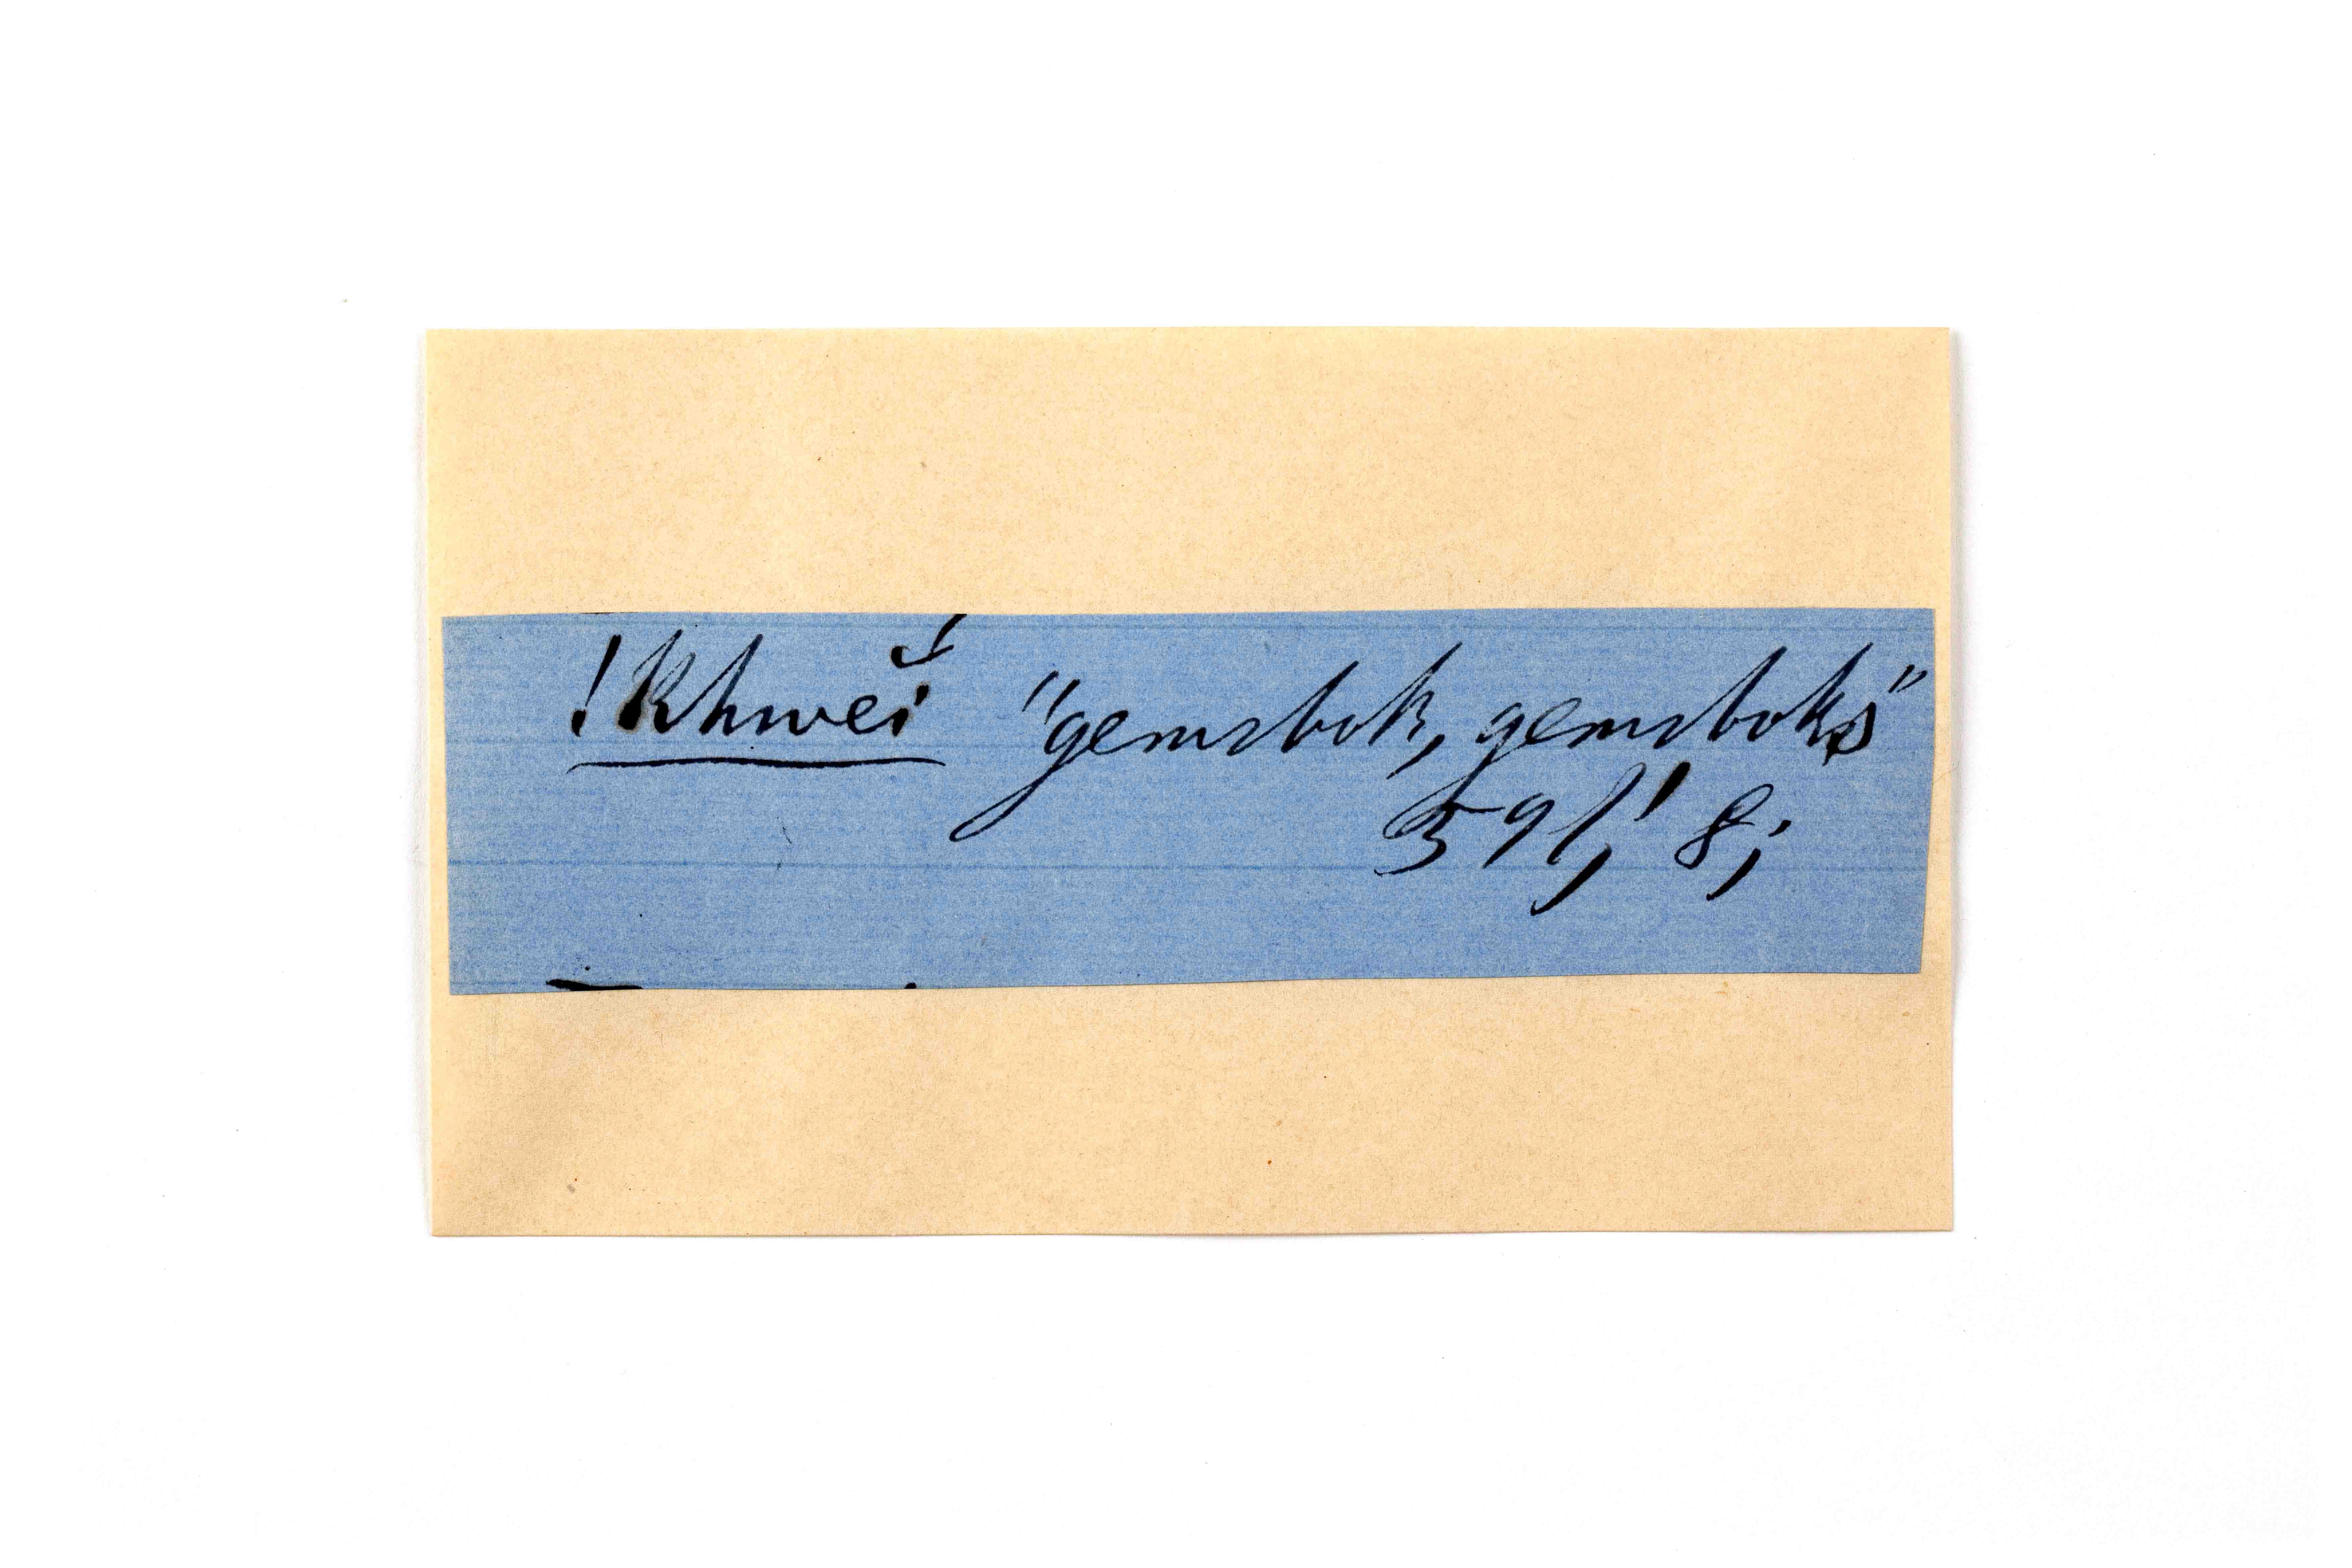 !Khwĕí "gemsbok, gemsboks"
591,' 8;